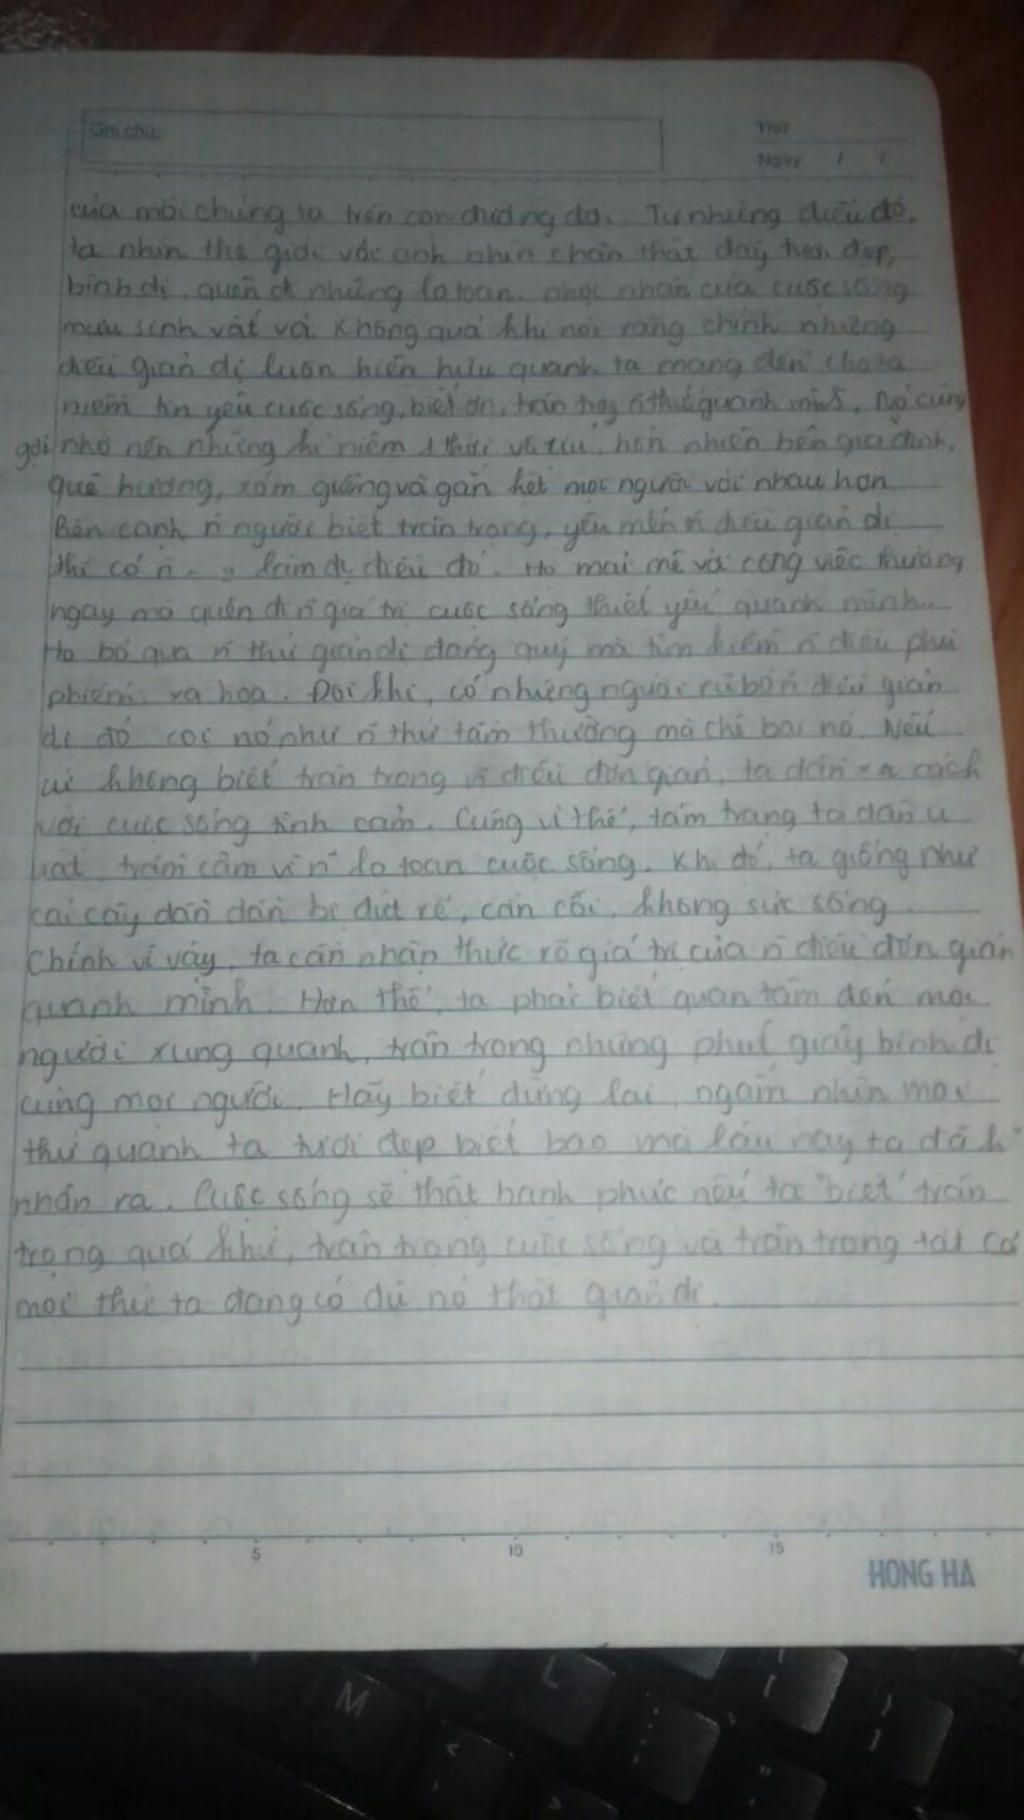 Ghi chú:
Thứ
Ngày / /
của mỗi chúng ta trên con đường đó. Từ những điều đó,
ta nhìn thế giới với ánh nhìn chân thật đầy tươi đẹp,
bình dị, quên đi những lo toan, nhọc nhằn của cuộc sống
mưu sinh vất vả. Không quá khi nói rằng chính những
điều giản dị luôn hiện hữu quanh ta mang đến cho ta
niềm tin yêu cuộc sống, biết ơn, trân trọng ~ thứ quanh mình. Nó cũng
gợi nhớ nên những kỉ niệm 1 thời vô tư, hồn nhiên bên gia đình,
quê hương, xóm giềng và gắn kết mọi người với nhau hơn.
Bên cạnh ñ người biết trân trọng, yêu mến ñ điều giản dị
thì có ñ làm đc điều đó. Họ mải mê với công việc thường
ngày mà quên đi ñ giá trị cuộc sống thiết yếu quanh mình.
Họ bỏ qua ñ thứ giản dị đáng quý mà tìm kiếm ñ điều phù
phiếm, xa hoa. Đôi khi, có những người rũ bỏ ñ điều giản
dị đó coi nó như ñ thứ tầm thường mà chê bai nó. Nếu
cứ không biết trân trọng ñ điều đơn giản, ta dần xa cách
với cuộc sống tình cảm. Cũng vì thế, tâm trạng ta dần u
uất, trầm cảm vì ñ lo toan cuộc sống. Khi đó, ta giống như
cái cây dần dần bị đứt rễ, cằn cỗi, không sức sống.
Chính vì vậy, ta cần nhận thức rõ giá trị của ñ điều đơn giản
quanh mình. Hơn thế, ta phải biết quan tâm đến mọi
người xung quanh, trân trọng những phút giây bình dị
cùng mọi người. Hãy biết dừng lại, ngắm nhìn mọi
thứ quanh ta tươi đẹp biết bao mà lâu nay ta đã k
nhận ra. Cuộc sống sẽ thật hạnh phúc nếu ta biết trân
trọng quá khứ, trân trọng cuộc sống và trân trọng tất cả
mọi thứ ta đang có dù nó thật giản dị.
5 10 15
HONG HA
M
L